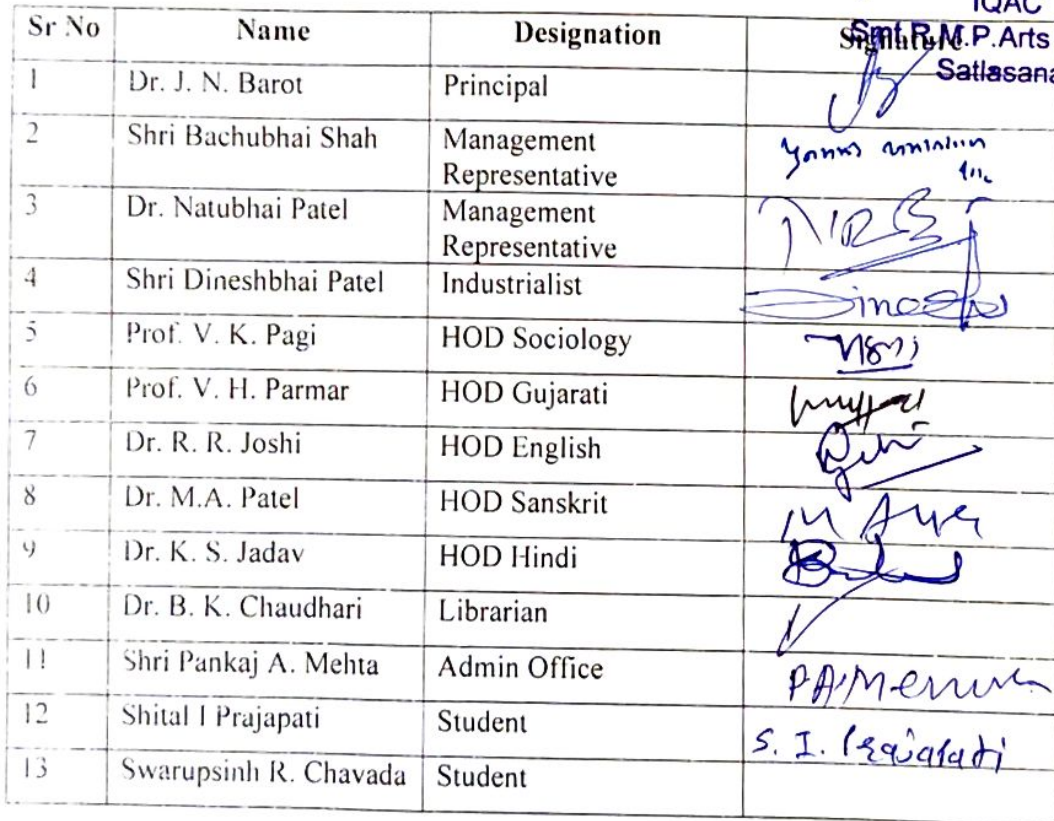 IQAC
Smt.R.M.P.Arts
Satlasana
Sr No Name Designation Signature
1 Dr. J. N. Barot Principal
2 Shri Bachubhai Shah Management
Representative
3 Dr. Natubhai Patel Management
Representative
4 Shri Dineshbhai Patel Industrialist
5 Prof. V. K. Pagi HOD Sociology
6 Prof. V. H. Parmar HOD Gujarati
7 Dr. R. R. Joshi HOD English
8 Dr. M.A. Patel HOD Sanskrit
9 Dr. K. S. Jadav HOD Hindi
10 Dr. B. K. Chaudhari Librarian
11 Shri Pankaj A. Mehta Admin Office
12 Shital I Prajapati Student S. I. Prajapati
13 Swarupsinh R. Chavada Student